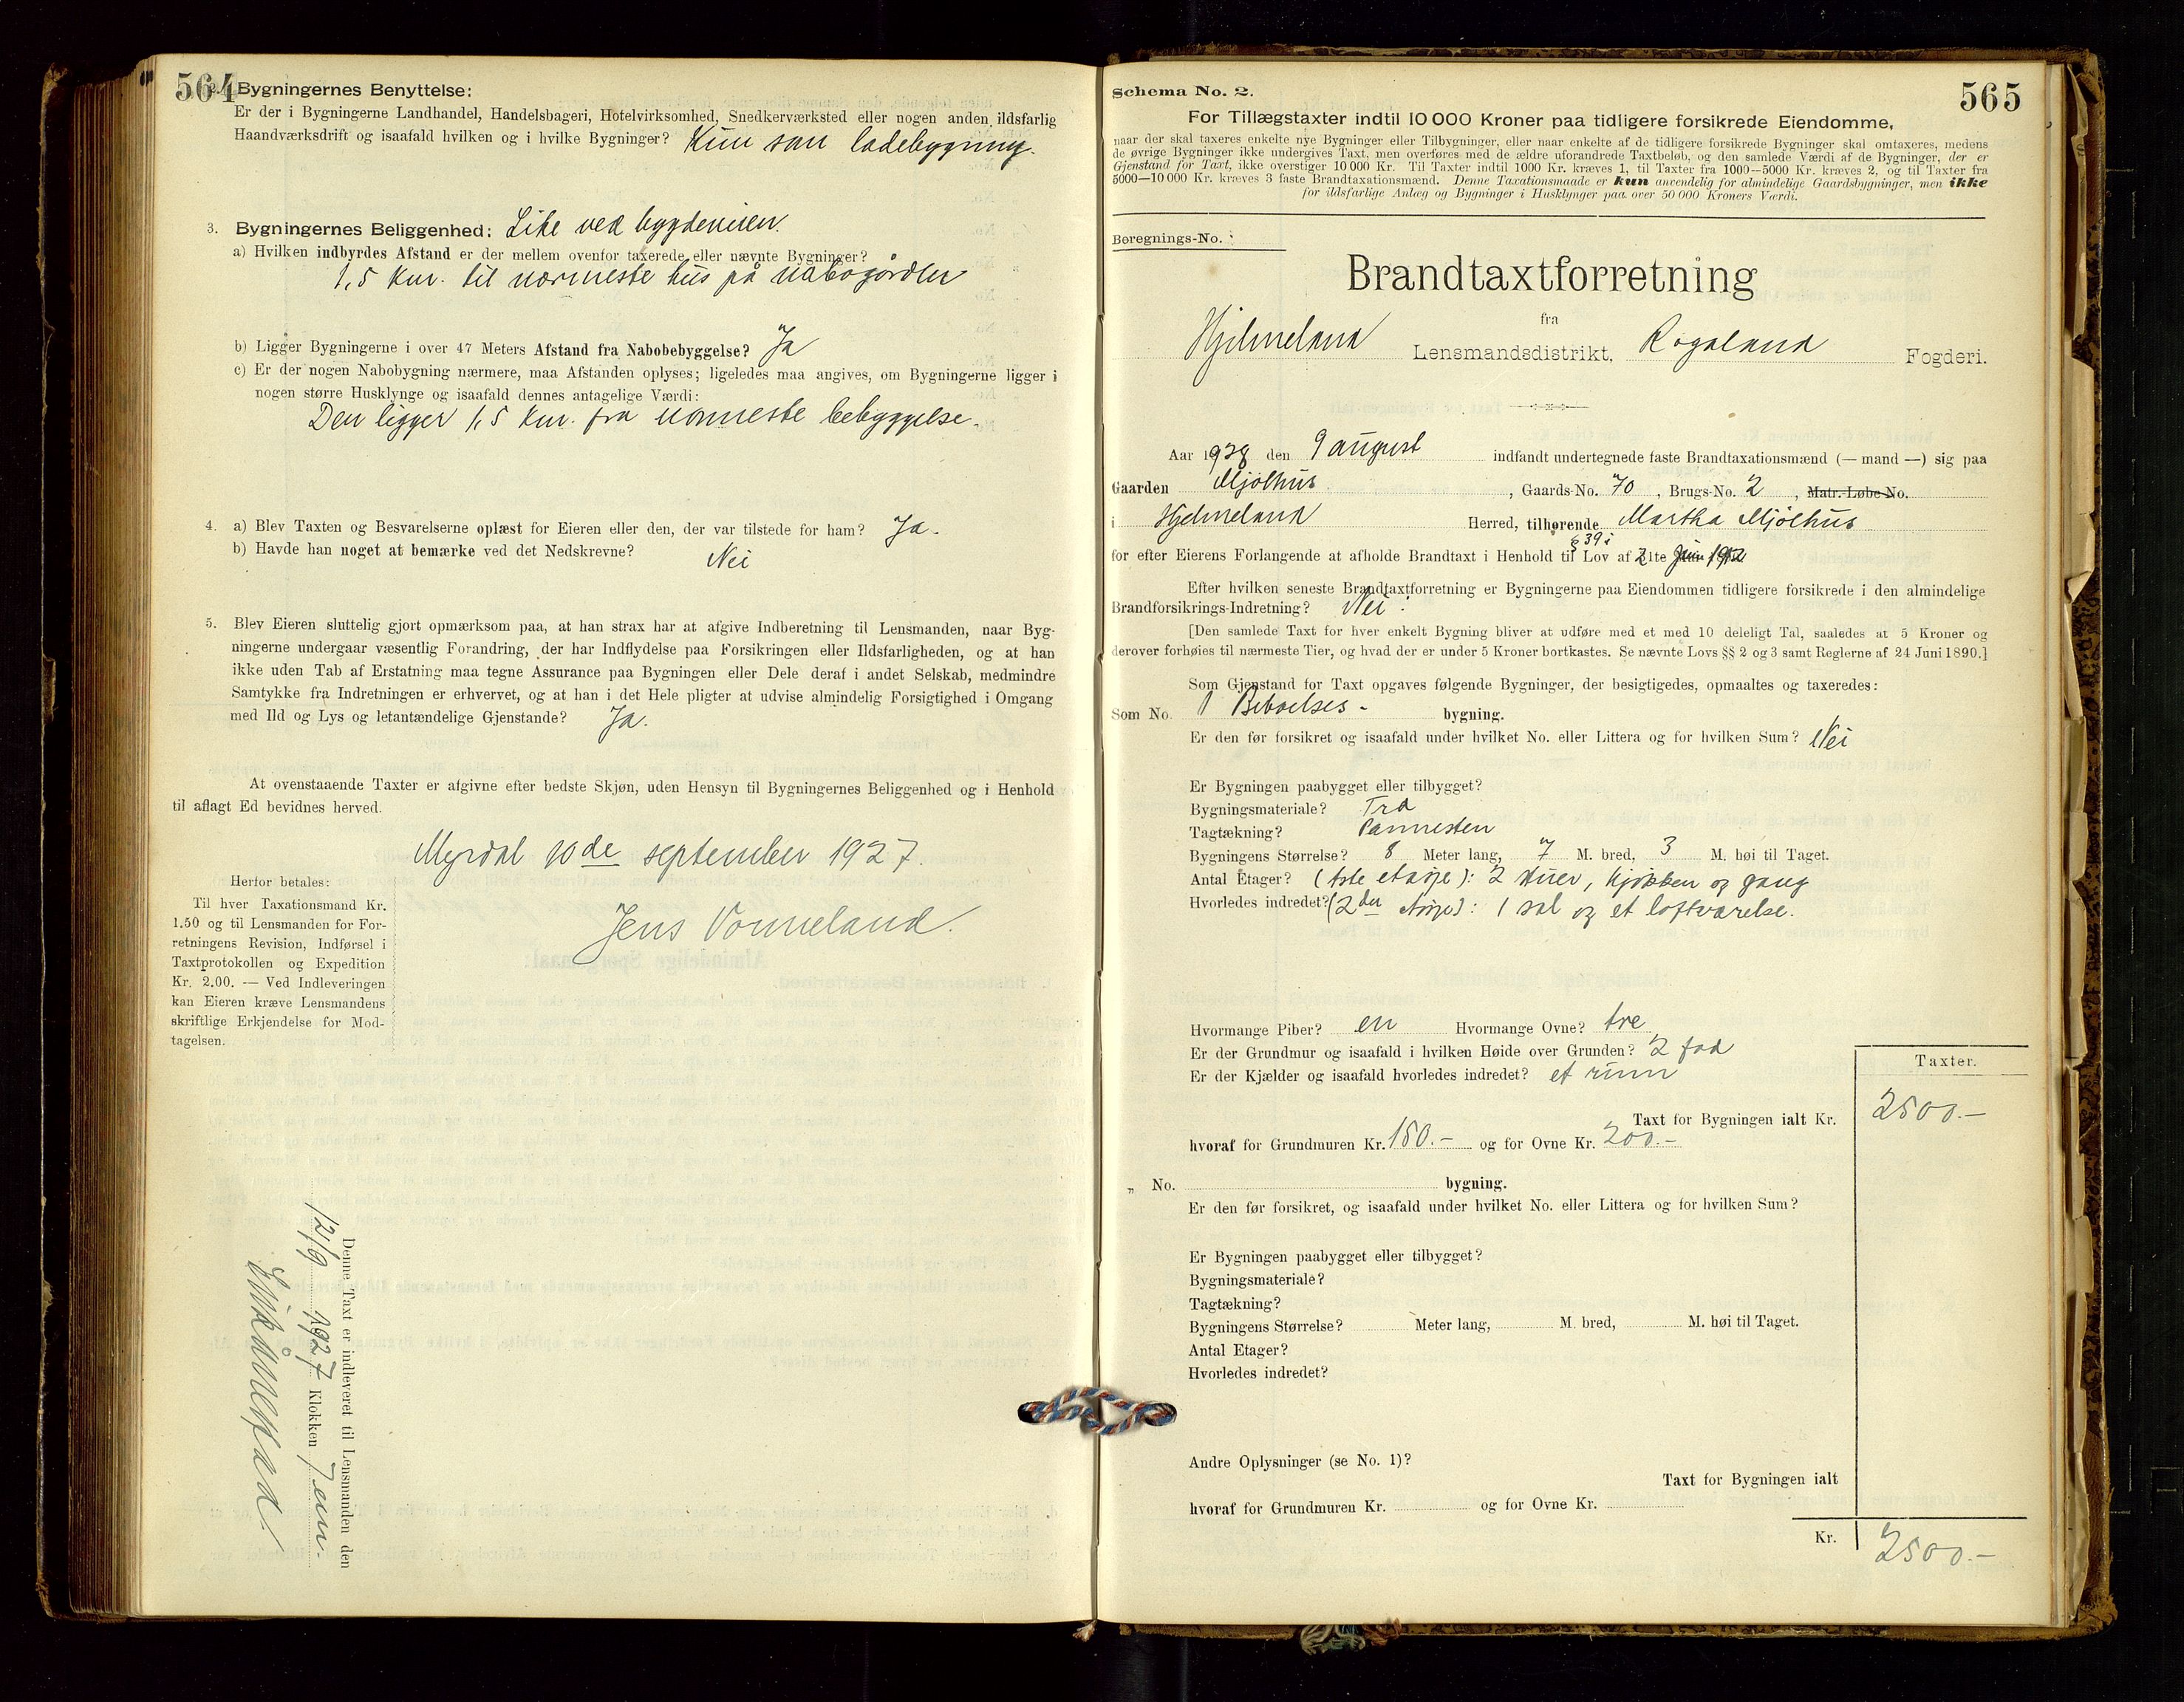 564
2. Bygningernes Benyttelse:
Er der i Bygningerne Landhandel, Handelsbageri, Hotelvirksomhed, Snedkerværksted eller nogen anden ildsfarlig
Haandværksdrift og isaafald hvilken og i hvilke Bygninger? Kun som ladebygning.
3. Bygningernes Beliggenhed: Like ved bygdeveien.
a) Hvilken indbyrdes Afstand er der mellem ovenfor taxerede eller nævnte Bygninger?
1,5 km. til nærmeste hus på nabogården
b) Ligger Bygningerne i over 47 Meters Afstand fra Nabobebyggelse? Ja
c) Er der nogen Nabobygning nærmere, maa Afstanden oplyses; ligeledes maa angives, om Bygningerne ligger i
nogen større Husklynge og isaafald dennes antagelige Værdi:
Den ligger 1,5 km. fra nærmeste bebyggelse.
4. a) Blev Taxten og Besvarelserne oplæst for Eieren eller den, der var tilstede for ham? Ja.
b) Havde han noget at bemærke ved det Nedskrevne? Nei
5. Blev Eieren sluttelig gjort opmærksom paa, at han strax har at afgive Indberetning til Lensmanden, naar Byg-
ningerne undergaar væsentlig Forandring, der har Indflydelse paa Forsikringen eller Ildsfarligheden, og at han
ikke uden Tab af Erstatning maa tegne Assurance paa Bygningen eller Dele deraf i andet Selskab, medmindre
Samtykke fra Indretningen er erhvervet, og at han i det Hele pligter at udvise almindelig Forsigtighed i Omgang
med Ild og Lys og letantændelige Gjenstande? Ja.
At ovenstaaende Taxter er afgivne efter bedste Skjøn, uden Hensyn til Bygningernes Beliggenhed og i Henhold
til aflagt Ed bevidnes herved.
Myrdal 10de september 1927.
Jens Vonneland.
Herfor betales:
Til hver Taxationsmand Kr.
1.50 og til Lensmanden for For-
retningens Revision, Indførsel i
Taxtprotokollen og Expedition
Kr. 2.00. — Ved Indleveringen
kan Eieren kræve Lensmandens
skriftlige Erkjendelse for Mod-
tagelsen.
Denne Taxt er indleveret til Lensmanden den
12/9 1927 Klokken 7 em.
565
Schema No. 2.
For Tillægstaxter indtil 10 000 Kroner paa tidligere forsikrede Eiendomme,
naar der skal taxeres enkelte nye Bygninger eller Tilbygninger, eller naar enkelte af de tidligere forsikrede Bygninger skal omtaxeres, medens
de øvrige Bygninger ikke undergives Taxt, men overføres med de ældre uforandrede Taxtbeløb, og den samlede Værdi af de Bygninger, der er
Gjenstand for Taxt, ikke overstiger 10 000 Kr. Til Taxter indtil 1000 Kr. kræves 1, til Taxter fra 1000—5000 Kr. kræves 2, og til Taxter fra
5000—10 000 Kr. kræves 3 faste Brandtaxationsmænd. Denne Taxationsmaade er kun anvendelig for almindelige Gaardsbygninger, men ikke
for ildsfarlige Anlæg og Bygninger i Husklynger paa over 50 000 Kroners Værdi.
Beregnings-No. :
Brandtaxtforretning
fra
Hjelmeland Lensmandsdistrikt, Rogaland Fogderi.
Aar 1928 den 9 august indfandt undertegnede faste Brandtaxationsmænd (— mand —) sig paa
Gaarden Mjølhus, Gaards-No. 70, Brugs-No. 2, Matr.-Løbe-No.
i Hjelmeland Herred, tilhørende Martha Mjølhus
§ 39 i
for efter Eierens Forlangende at afholde Brandtaxt i Henhold til Lov af 21te Juni 1912
Efter hvilken seneste Brandtaxtforretning er Bygningerne paa Eiendommen tidligere forsikrede i den almindelige
Brandforsikrings-Indretning? Nei.
[Den samlede Taxt for hver enkelt Bygning bliver at udføre med et med 10 deleligt Tal, saaledes at 5 Kroner og
derover forhøies til nærmeste Tier, og hvad der er under 5 Kroner bortkastes. Se nævnte Lovs §§ 2 og 3 samt Reglerne af 24 Juni 1890.]
Som Gjenstand for Taxt opgaves følgende Bygninger, der besigtigedes, opmaaltes og taxeredes:
Som No. 1 Beboelses- bygning.
Er den før forsikret og isaafald under hvilket No. eller Littera og for hvilken Sum? Nei
Er Bygningen paabygget eller tilbygget?
Bygningsmateriale? Træ
Tagtækning? Pannesten
Bygningens Størrelse? 8 Meter lang, 7 M. bred, 3 M. høi til Taget.
Antal Etager? (1ste etage): 2 stuer, kjøkken og gang
Hvorledes indretet? (2den etage): 1 sal og et loftværelse.
Hvormange Piber? en Hvormange Ovne? tre
Er der Grundmur og isaafald i hvilken Høide over Grunden? 2 fod
Er der Kjælder og isaafald hvorledes indredet? et rum
Taxter.
Taxt for Bygningen ialt Kr. 2500.-
hvoraf for Grundmuren Kr. 150.- og for Ovne Kr. 200.-
„ No. bygning.
Er den før forsikret, og isaafald under hvilket No. eller Littera og for hvilken Sum?
Er Bygningen paabygget eller tilbygget?
Bygningsmateriale?
Tagtækning?
Bygningens Størrelse? Meter lang, M. bred, M. høi til Taget.
Antal Etager?
Hvorledes indredet?
Andre Oplysninger (se No. 1)?
Taxt for Bygningen ialt
hvoraf for Grundmuren Kr. og for Ovne Kr.
Kr. 2500.-